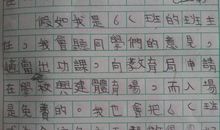 假如我是6(班的班主
任,我會聽同學們的意見,
適當出功課。向教育局申請
在學校興建體育場,而入場
是免費的。我也會把6(班